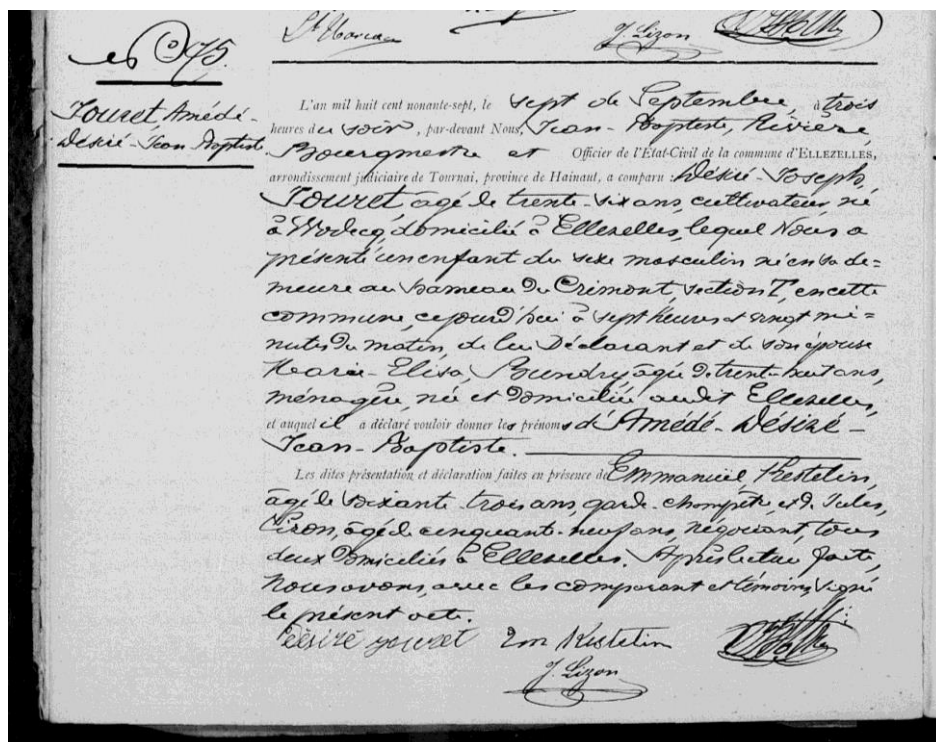 J. Lizon
N° 75.
Jouret, Amédé-
Désiré-Jean-Baptiste.
L'an mil huit cent nonante-sept, le sept de Septembre, à trois
heures du soir, par-devant Nous, Jean-Baptiste, Rivière,
Bourgmestre et Officier de l'Etat-Civil de la commune d'ELLEZELLES,
arrondissement judiciaire de Tournai, province de Hainaut, a comparu : Désiré-Joseph,
Jouret âgé de trente-six ans, cultivateur, né
à Wodecq, domicilié à Ellezelles, lequel Nous a
présenté un enfant du sexe masculin né en sa de=
meure au hameau du Crimont, section I, en cette
commune, cejourd'hui à sept heures et vingt mi=
nutes du matin, de lui Déclarant et de son épouse
Marie-Elisa, Bundry, âgée de trente-huit ans,
ménagère, née et domiciliée audit Ellezelles,
et auquel il a déclaré vouloir donner les prénoms d'Amédé-Désiré-
Jean-Baptiste.
Les dites présentation et déclaration faites en présence de Emmanuël, Kestelin,
âgé de soixante-trois ans, garde-champêtre et d. Jules,
Lizon, âgé de cinquante-neuf ans, négociant, tous
deux domiciliés à Ellezelles. Après lecture faite,
Nous avons, avec les comparant et témoins, signé
le présent acte.
Désiré Jouret Em Kestelin
J. Lizon